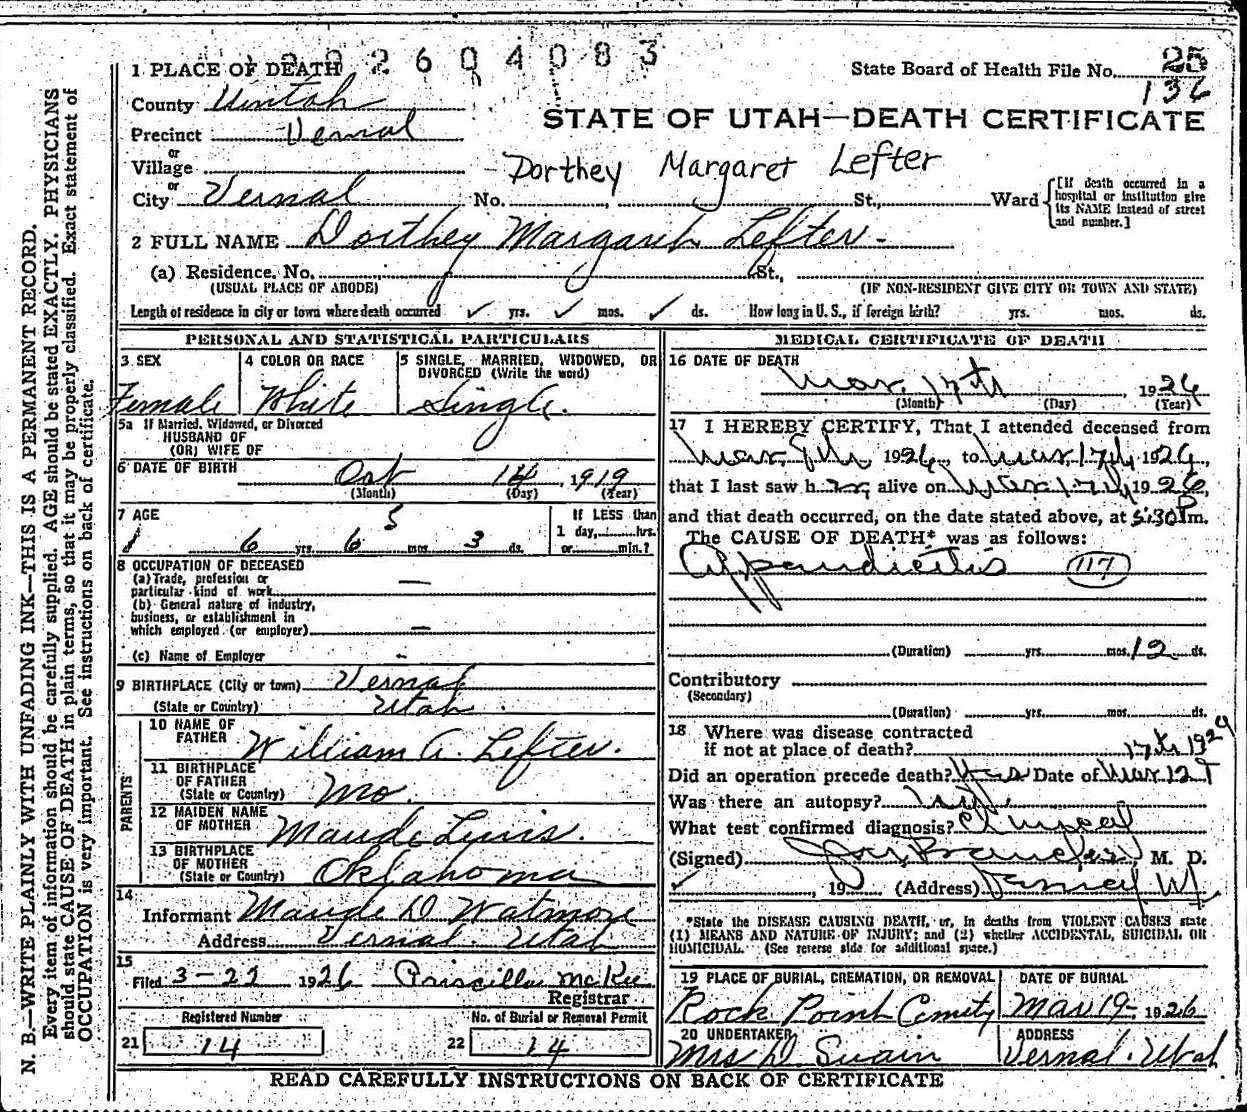 2604083
1 PLACE OF DEATH
State Board of Health File No. 25
136
County Uintah
STATE OF UTAH—DEATH CERTIFICATE
Precinct Vernal
or
Village
Dorthey Margaret Lefter
or
City Vernal No. , St., Ward
[If death occurred in a hospital or institution give its NAME instead of street and number.]
2 FULL NAME Dorthey Margaret Lefter
(a) Residence. No. St.,
(USUAL PLACE OF ABODE) (IF NON-RESIDENT GIVE CITY OR TOWN AND STATE)
Length of residence in city or town where death occurred ✓ yrs. ✓ mos. ✓ ds. How long in U. S., if foreign birth? yrs. mos. ds.
PERSONAL AND STATISTICAL PARTICULARS
3 SEX
Female
4 COLOR OR RACE
White
5 SINGLE, MARRIED, WIDOWED, OR DIVORCED (Write the word)
Single.
5a If Married, Widowed, or Divorced
HUSBAND OF
(OR) WIFE OF
6 DATE OF BIRTH Oct 14, 1919
(Month) (Day) (Year)
7 AGE
5
6 yrs. 6 mos. 3 ds.
If LESS than
1 day, hrs.
or min.?
8 OCCUPATION OF DECEASED
(a) Trade, profession or
particular kind of work —
(b) General nature of industry,
business, or establishment in
which employed (or employer) —
(c) Name of Employer -
9 BIRTHPLACE (City or town) Vernal
(State or Country) Utah.
PARENTS
10 NAME OF FATHER William A. Lefter.
11 BIRTHPLACE OF FATHER (State or Country) Mo.
12 MAIDEN NAME OF MOTHER Maude Lewis.
13 BIRTHPLACE OF MOTHER (State or Country) Oklahoma
14
Informant Maude D Watmore
Address Vernal. Utah
15
Filed 3-22 1926 Priscilla McKee
Registrar
Registered Number
21 14
No. of Burial or Removal Permit
22 14
MEDICAL CERTIFICATE OF DEATH
16 DATE OF DEATH
Mar. 17th, 1926
(Month) (Day) (Year)
17 I HEREBY CERTIFY, That I attended deceased from
Mar 9th 1926, to Mar 17th, 1926,
that I last saw her alive on Mar 17th 1926,
and that death occurred, on the date stated above, at 5:30 P m.
The CAUSE OF DEATH* was as follows:
Appendicitis 117
(Duration) yrs. mos. 12 ds.
Contributory
(Secondary)
(Duration) yrs. mos. ds.
18 Where was disease contracted
if not at place of death?
Did an operation precede death? Yes Date of Mar 12
Was there an autopsy?
What test confirmed diagnosis? Clinical
(Signed) M. D.
✓, 19 (Address)
*State the DISEASE CAUSING DEATH, or, in deaths from VIOLENT CAUSES state
(1) MEANS AND NATURE OF INJURY; and (2) whether ACCIDENTAL, SUICIDAL OR
HOMICIDAL. (See reverse side for additional space.)
19 PLACE OF BURIAL, CREMATION, OR REMOVAL
Rock Point
DATE OF BURIAL
Mar 19- 1926
20 UNDERTAKER
Mrs D. Swain
ADDRESS
Vernal. Utah
READ CAREFULLY INSTRUCTIONS ON BACK OF CERTIFICATE
N. B.—WRITE PLAINLY WITH UNFADING INK—THIS IS A PERMANENT RECORD.
Every item of information should be carefully supplied. AGE should be stated EXACTLY. PHYSICIANS
should state CAUSE OF DEATH in plain terms, so that it may be properly classified. Exact statement of
OCCUPATION is very important. See instructions on back of certificate.